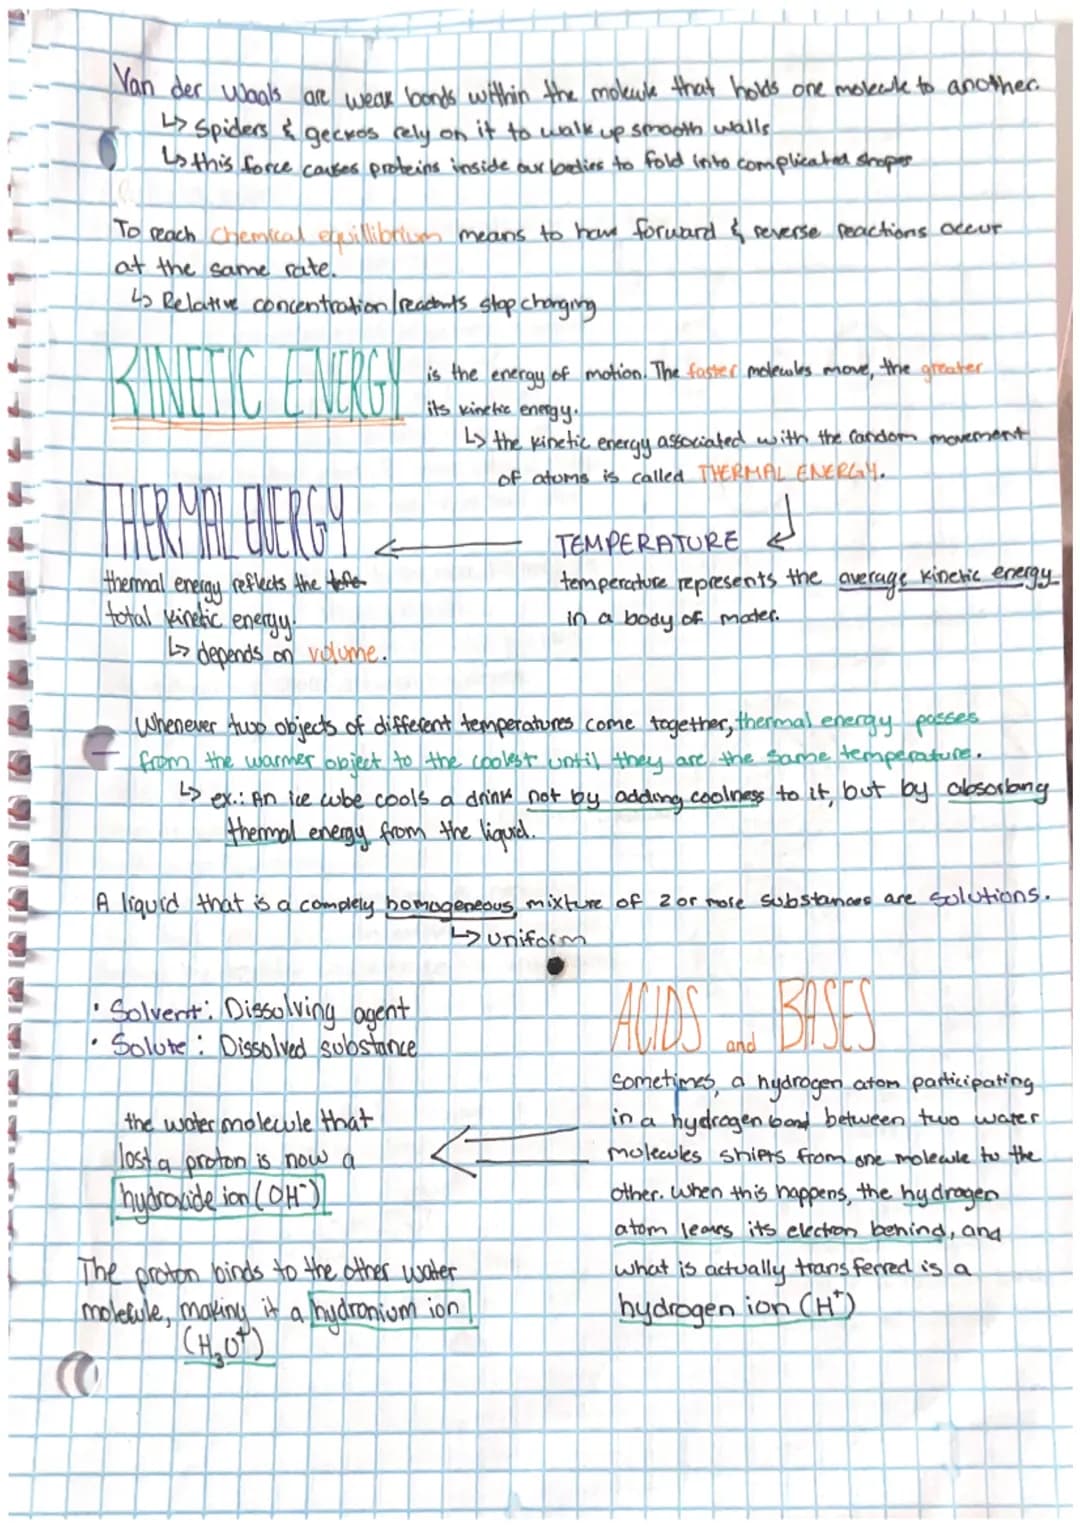 Van der Waals are weak bonds within the molecule that holds one molecule to another.
↳ Spiders & geckos rely on it to walk up smooth walls
↳ this force causes proteins inside our bodies to fold into complicated shapes
To reach chemical equillibrium means to have forward & reverse reactions occur
at the same rate.
↳ Relative concentration/reactants stop changing
KINETIC ENERGY is the energy of motion. The faster molecules move, the greater
its kinetic energy.
↳ the kinetic energy associated with the random movement
of atoms is called THERMAL ENERGY.
THERMAL ENERGY
thermal energy reflects the
total kinetic energy.
↳ depends on volume.
TEMPERATURE
temperature represents the average kinetic energy
in a body of mater.
Whenever two objects of different temperatures come together, thermal energy passes
from the warmer object to the coolest until they are the same temperature.
↳ ex.: An ice cube cools a drink not by adding coolness to it, but by absorbing
thermal energy from the liquid.
A liquid that is a complety homogeneous mixture of 2 or more substances are solutions.
↳ uniform
• Solvent: Dissolving agent
• Solute: Dissolved substance
ACIDS and BASES
Sometimes, a hydrogen atom participating
in a hydrogen bond between two water
molecules shifts from one molecule to the
other. When this happens, the hydrogen
atom leaves its electron behind, and
what is actually transferred is a
hydrogen ion (H⁺)
the water molecule that
lost a proton is now a
hydroxide ion (OH⁻)
The proton binds to the other water
molecule, making it a hydronium ion
(H₃O⁺)